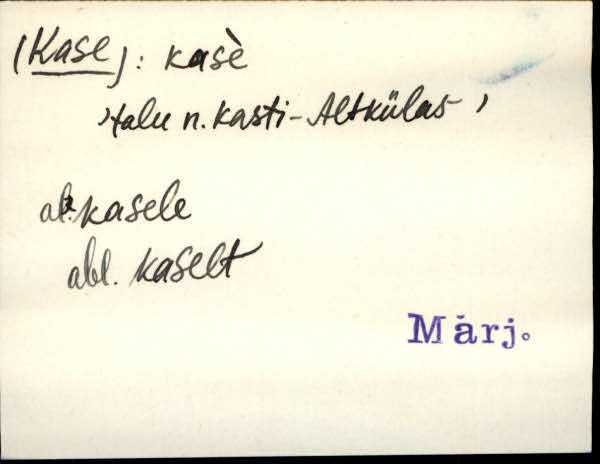 (Kase): kasè
, talu n. Kasti-Altkülas,
al. kasele
abl. kaselt
Märj.